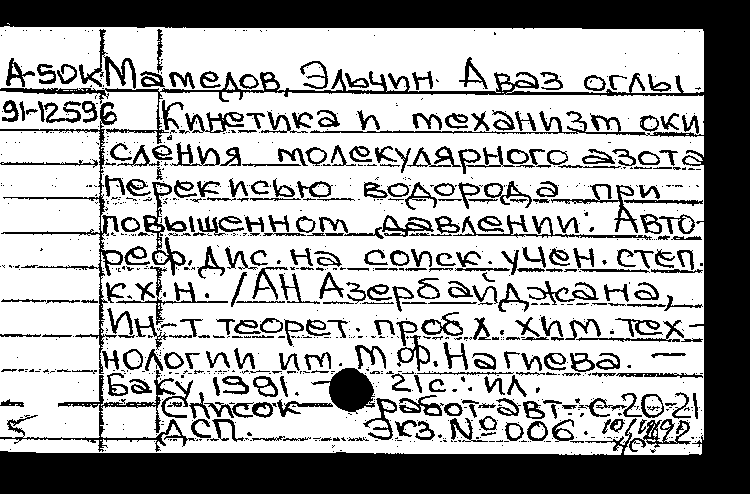 А-50к Мамедов, Эльчин Аваз оглы
91-12596 Кинетика и механизм оки-
сления молекулярного азота
перекисью водорода при
повышенном давлении: Авто-
реф. дис. на соиск. учен. степ.
к.х.н. /АН Азербайджана,
Ин-т теорет. пробл. хим. тех-
нологии им. М.Ф. Нагиева. —
Баку, 1991. — 21с.: ил.
Список работ авт.: с.20-21
ДСП. Экз. № 006.